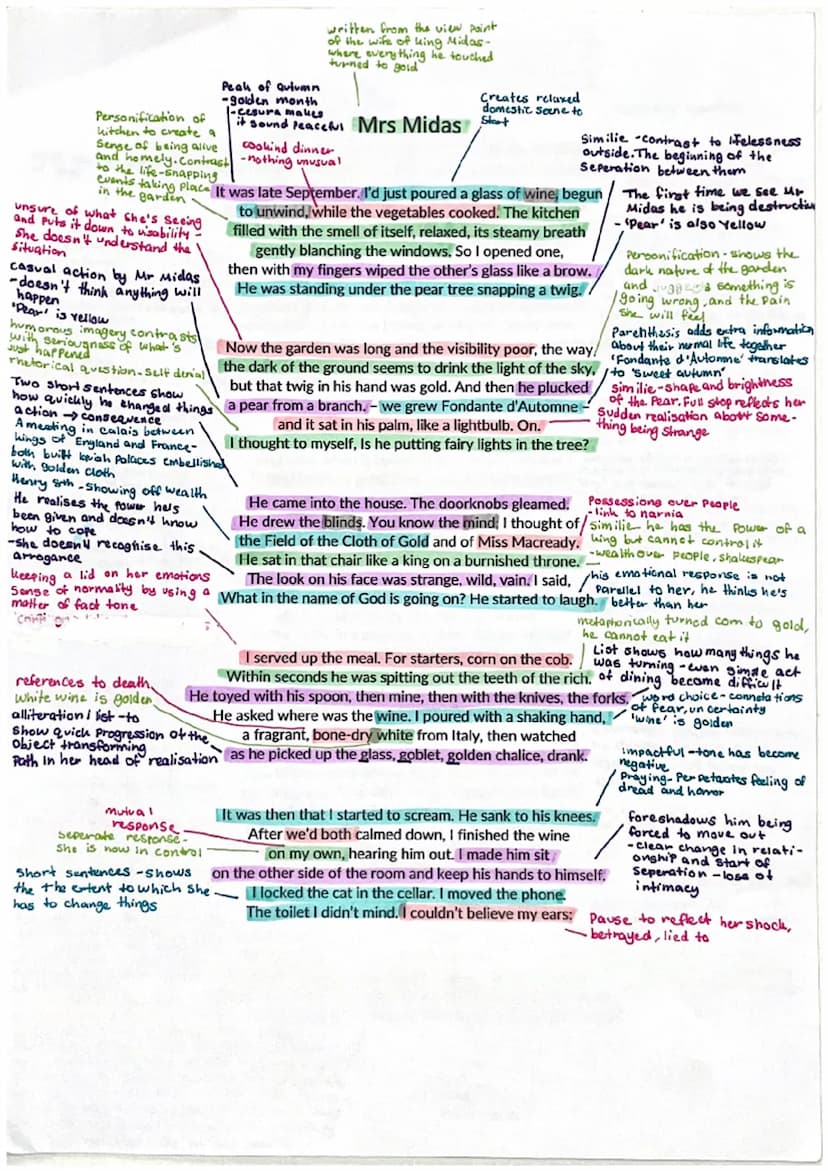 written from the view point
of the wife of King Midas-
where everything he touched
turned to gold
Peak of autumn
-golden month
-cesura makes
it sound peaceful
Creates relaxed
domestic scene to
start
Mrs Midas
Personification of
kitchen to create a
sense of being alive
and homely. contrast
to the life-snapping
events taking place
in the garden
cookind dinner
-nothing unusual
Similie -contrast to lifelessness
outside. The beginning of the
Seperation between them
The first time we see Mr
Midas he is being destructive
- 'Pear' is also Yellow
It was late September. I'd just poured a glass of wine, begun
to unwind, while the vegetables cooked. The kitchen
filled with the smell of itself, relaxed, its steamy breath
gently blanching the windows. So I opened one,
then with my fingers wiped the other's glass like a brow.
He was standing under the pear tree snapping a twig.
unsure of what she's seeing
and puts it down to visability-
she doesn't understand the
situation
Casual action by Mr Midas
-doesn't think anything will
happen
'Pear' is yellow
humorous imagery contrasts
with seriousness of what's
just happened
rhetorical question-self denial
Personification - shows the
dark nature of the garden
and something is
going wrong, and the pain
she will feel
Parenthasis adds extra information
about their normal life together
'Fondante d'Automne' translates
to 'sweet autumn'
similie-shape and brightness
of the pear. Full stop reflects her
sudden realisation about some-
thing being strange
Now the garden was long and the visibility poor, the way
the dark of the ground seems to drink the light of the sky,
but that twig in his hand was gold. And then he plucked
a pear from a branch. – we grew Fondante d'Automne –
and it sat in his palm, like a lightbulb. On.
I thought to myself, Is he putting fairy lights in the tree?
Two short sentences show
how quickly he changed things
action → consequence
A meeting in calais between
kings of England and France-
both built lavish palaces embellished
with golden cloth
Henry 8th -Showing off wealth
He realises the power he's
been given and doesn't know
how to cope
-she doesn't recognise this
arrogance
keeping a lid on her emotions
sense of normality by using a
matter of fact tone
Possessions over People
-link to narnia
similie- he has the power of a
king but cannot control it
-wealth over people, shakespear
his emotional response is not
parallel to her, he thinks he's
better than her
He came into the house. The doorknobs gleamed.
He drew the blinds. You know the mind; I thought of
the Field of the Cloth of Gold and of Miss Macready.
He sat in that chair like a king on a burnished throne.
The look on his face was strange, wild, vain. I said,
What in the name of God is going on? He started to laugh.
metaphorically turned corn to gold,
he cannot eat it
List shows how many things he
was turning -even simple act
of dining become difficult
word choice-connotations
of fear, uncertainty
'wine' is golden
references to death
white wine is golden
alliteration/list -to
show quick progression of the
object transforming
Path in her head of realisation
I served up the meal. For starters, corn on the cob.
Within seconds he was spitting out the teeth of the rich.
He toyed with his spoon, then mine, then with the knives, the forks.
He asked where was the wine. I poured with a shaking hand,
a fragrant, bone-dry white from Italy, then watched
as he picked up the glass, goblet, golden chalice, drank.
impactful -tone has become
negative
Praying- Perpetuates feeling of
dread and horror
foreshadows him being
forced to move out
-clear change in relati-
onship and start of
seperation -loss of
intimacy
mutual
response
seperate response-
she is now in control
Short sentences -shows
the the extent to which she
has to change things
It was then that I started to scream. He sank to his knees.
After we'd both calmed down, I finished the wine
on my own, hearing him out. I made him sit
on the other side of the room and keep his hands to himself.
I locked the cat in the cellar. I moved the phone.
The toilet I didn't mind. I couldn't believe my ears:
Pause to reflect her shock,
betrayed, lied to